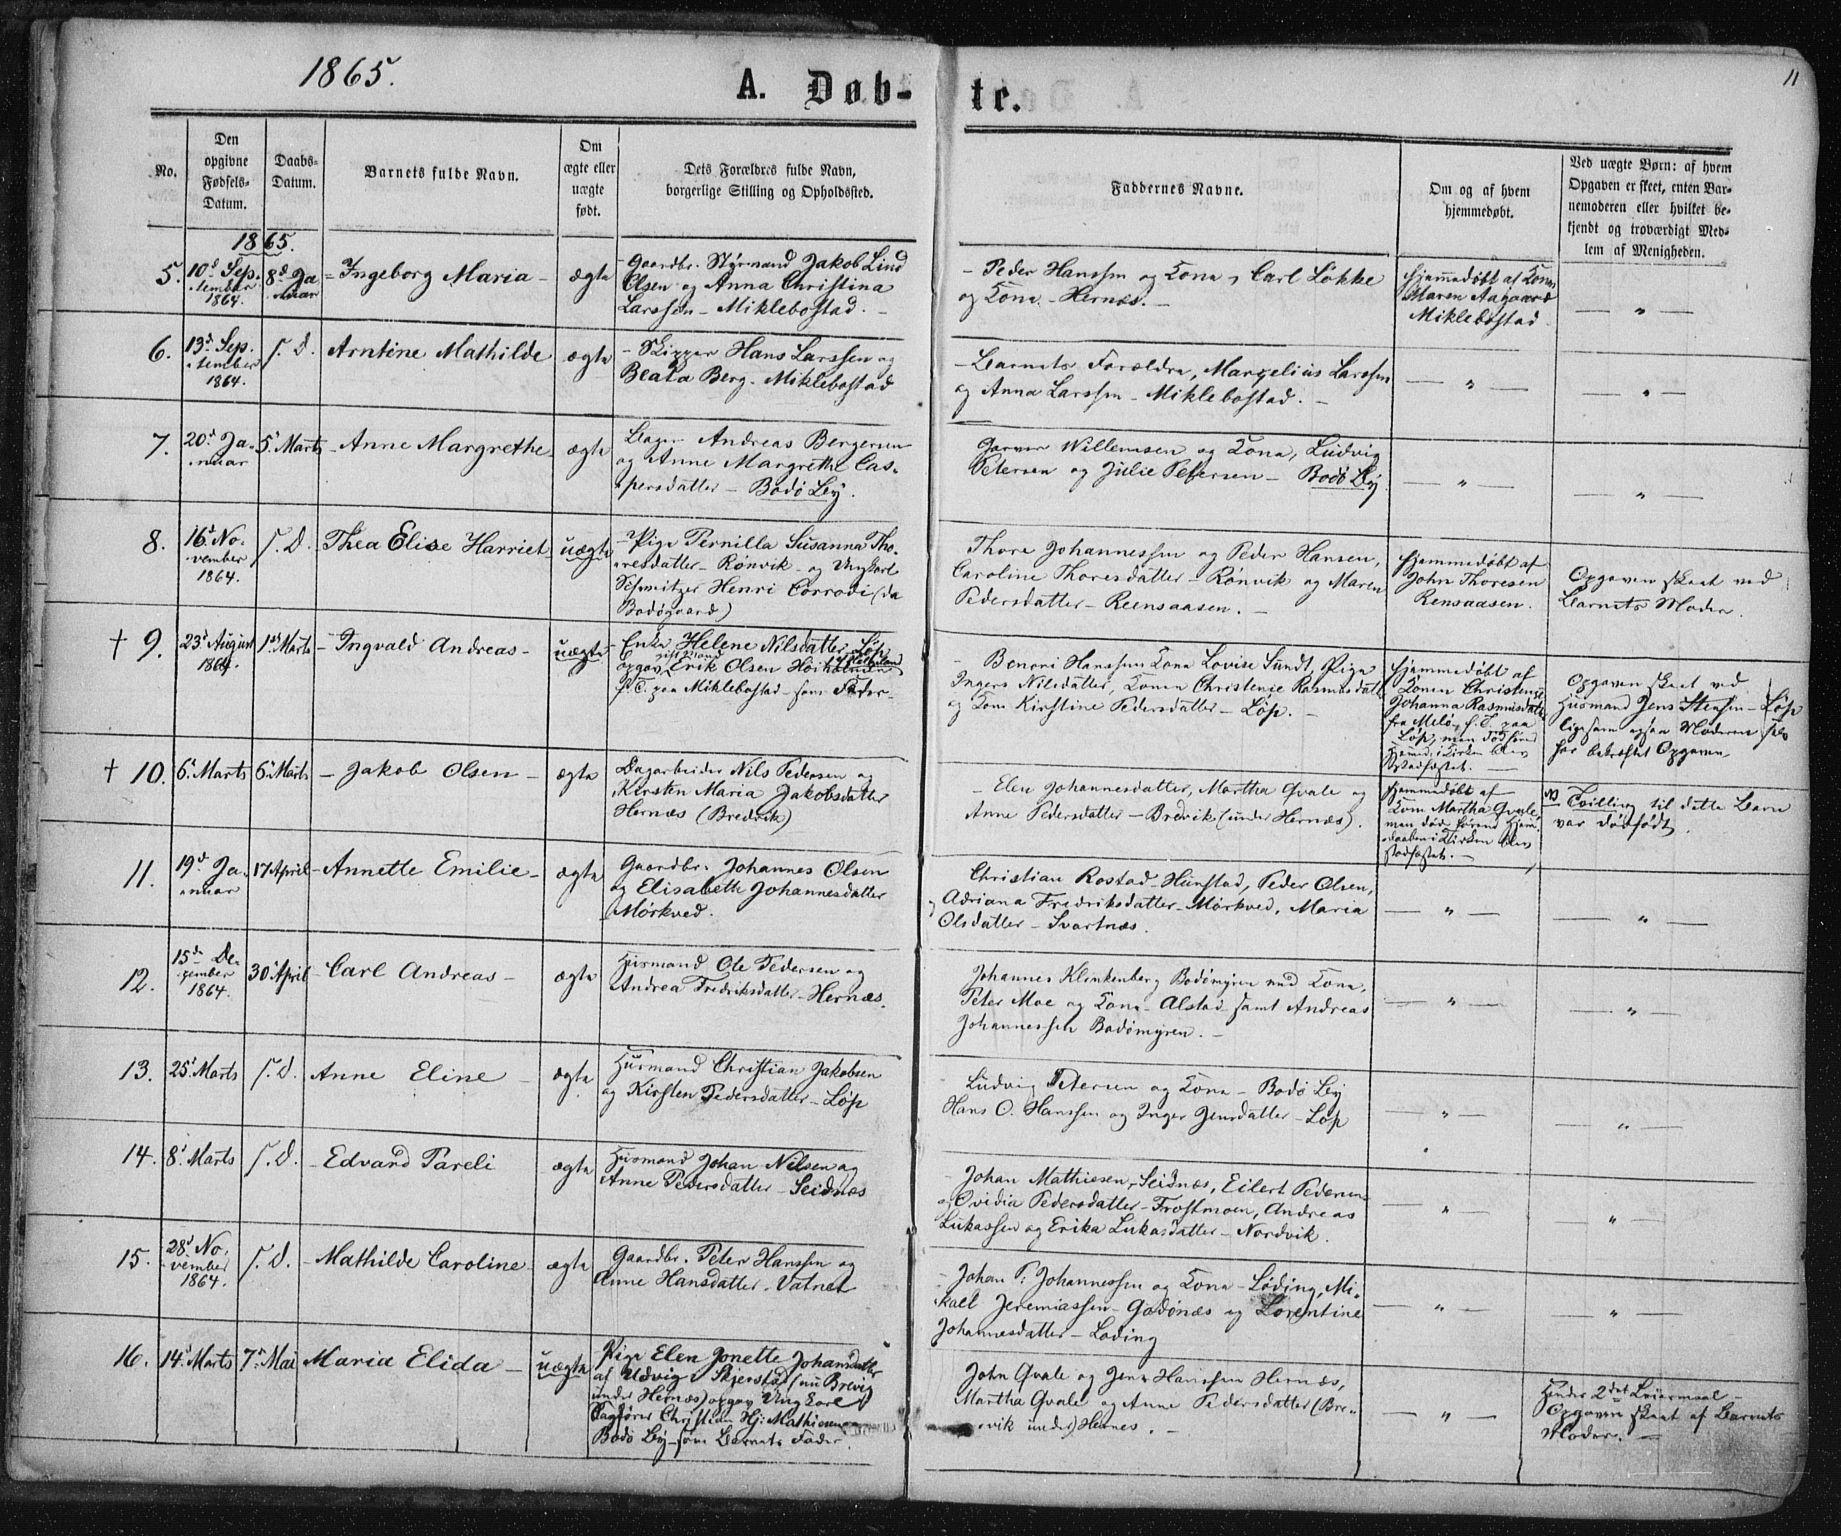 1865.
A. Døb-
te.
11
No.
Den
opgivne
Fødsels-
Datum.
Daabs-
Datum.
Barnets fulde Navn.
Om
ægte eller
uægte
født.
Dets Forældres fulde Navn,
borgerlige Stilling og Opholdssted.
Faddernes Navne.
Om og af hvem
hjemmedøbt.
Ved uægte Børn: af hvem
Opgaven er skeet, enten Bar-
nemoderen eller hvilket be-
kjendt og troværdigt Med-
lem af Menigheden.
1865.
5.
10d Sep-
tember
1864.
8d Ja-
nuar
- Ingeborg Maria -
ægte
Gaardbr. Styrmand Jakob Lind
Olsen og Anna Christina
Larssen - Miklebostad. -
- Peder Hanssen og Kone, Carl Løkke
og Kone - Hernæs. -
Hjemmedøbt af Konen
Maren Aagaard
Miklebostad
— „ —
6.
13d Sep-
tember
1864.
s. D.
Arntine Mathilde
ægte
- Skipper Hans Larssen og
Beata Berg - Miklebostad
- Barnets Forældre, Margelius Larssen
og Anna Larssen - Miklebostad. -
— „ —
— „ —
7.
20d Ja-
nuar
5' Marts
- Anne Margrethe
ægte
Bager Andreas Bergersen
og Anne Margrethe Cas-
persdatter - Bodø By.
Garver Willemsen og Kone, Ludvig
Petersen og Julie Petersen - Bodø By
— „ —
— „ —
8.
16d No-
vember
1864.
s. D.
Thea Elise Harriet
uægte
- Pige Pernilla Susanna Tho-
resdatter - Rønvik - og Ungkarl
Schweitzer Henri Corrodi (da
Bodøgaard)
Thore Johannessen og Peder Hansen,
Caroline Thoresdatter - Rønvik og Maren
Pedersdatter - Reensaasen. -
Hjemmedøbt af
John Thoresen
Rensaasen.
Opgaven skeet ved
Barnets Moder.
† 9.
23d August
1864.
1ste Marts
- Ingvald Andreas -
uægte
Enke Helene Nilsdatter - Løp
opgav Erik Olsen
f. T. paa Miklebostad - som Fader -
- Benoni Hanssens Kone Lovise Sundt, Pige
Ingers Nilsdatter, Konen Christense Rasmusdatt
og Kone Kirstine Pedersdatter - Løp. -
Hjemmedøbt af
Konen Christense
Johanna Rasmusdatter
fra Melø, f. T. paa
Løp, men død førend
Hjemd. i Kirken blev
stadfæstet. -
Opgaven skeet ved
Husmand Jens Stensen - Løp
ligesom ogsaa Moderen selv
har bekræftet Opgaven
† 10.
6' Marts
6' Marts
- Jakob Olsen -
ægte
Dagarbeider Nils Pedersen og
Kirsten Maria Jakobsdatter
Hernæs (Bredvik)
- Elen Johannesdatter, Martha Qvale og
Anne Pedersdatter - Brevik (under Hernæs).
Hjemmedøbt af
Kone Martha Qvale,
men døde førend Hjem-
medaaben i Kirken blev
stadfæstet. -
NB Tvilling til dette Barn
var dødfødt.
11.
19d Ja-
nuar
17 April
- Annette Emilie -
ægte
Gaardbr. Johannes Olsen
og Elisabeth Johannesdatter
Mørkved.
Christian Rostad - Hunstad, Peder Olsen,
Adriana Fredriksdatter - Mørkved, Maria
Olsdatter - Svartnæs.
— „ —
— „ —
12.
15d De-
zember
1864.
30' April
- Carl Andreas -
ægte
Husmand Ole Pedersen og
Andrea Fredriksdatter - Hernæs.
Johannes Klinkenberg Bodømyren med Kone,
Peter Moe og Kone - Alstad samt Andreas
Johannessen Bodømyren. -
— „ —
— „ —
13.
25' Marts
s. D.
Anne Eline -
ægte
Husmand Christian Jakobsen
og Kirsten Pedersdatter - Løp
Ludvig Petersen og Kone - Bodø By
Hans O. Hanssen og Inger Jensdatter - Løp
— „ —
— „ —
14.
8' Marts
s. D.
- Edvard Pareli
ægte
Husmand Johan Nilsen og
Anne Pedersdatter - Seidnæs
- Johan Mathiesen, Seidnæs, Eilert Pedersen
og Ovidia Pedersdatter - Frostmoen, Andreas
Lukassen og Erika Lukasdatter - Nordvik.
— „ —
„ —
15.
28d No-
vember
1864.
s. D.
- Mathilde Caroline
ægte
Gaardbr. Peter Hanssen og
Anne Hansdatter - Vatnet
- Johan P. Johannessen og Kone - Løding, Mi-
kael Jeremiassen - Godønæs og Lorentine
Johannesdatter - Løding
— „ —
„ —
16.
14' Marts
7' Mai
Maria Elida -
uægte
Pige Elen Jonette Johansdatter
af Udvig i Skjerstad (nu Brevig
under Hernæs) opgav Ungkarl
Christian Hj. Mathiesen
Bodø By - som Barnets Fader.
John Qvale og Jens Hanssen Hernæs,
Martha Qvale og Anne Pedersdatter (Bre-
vik under) Hernes. -
— „ —
Hendes 2det Leiermaal -
Opgaven skeet af Barnets
Moder. —